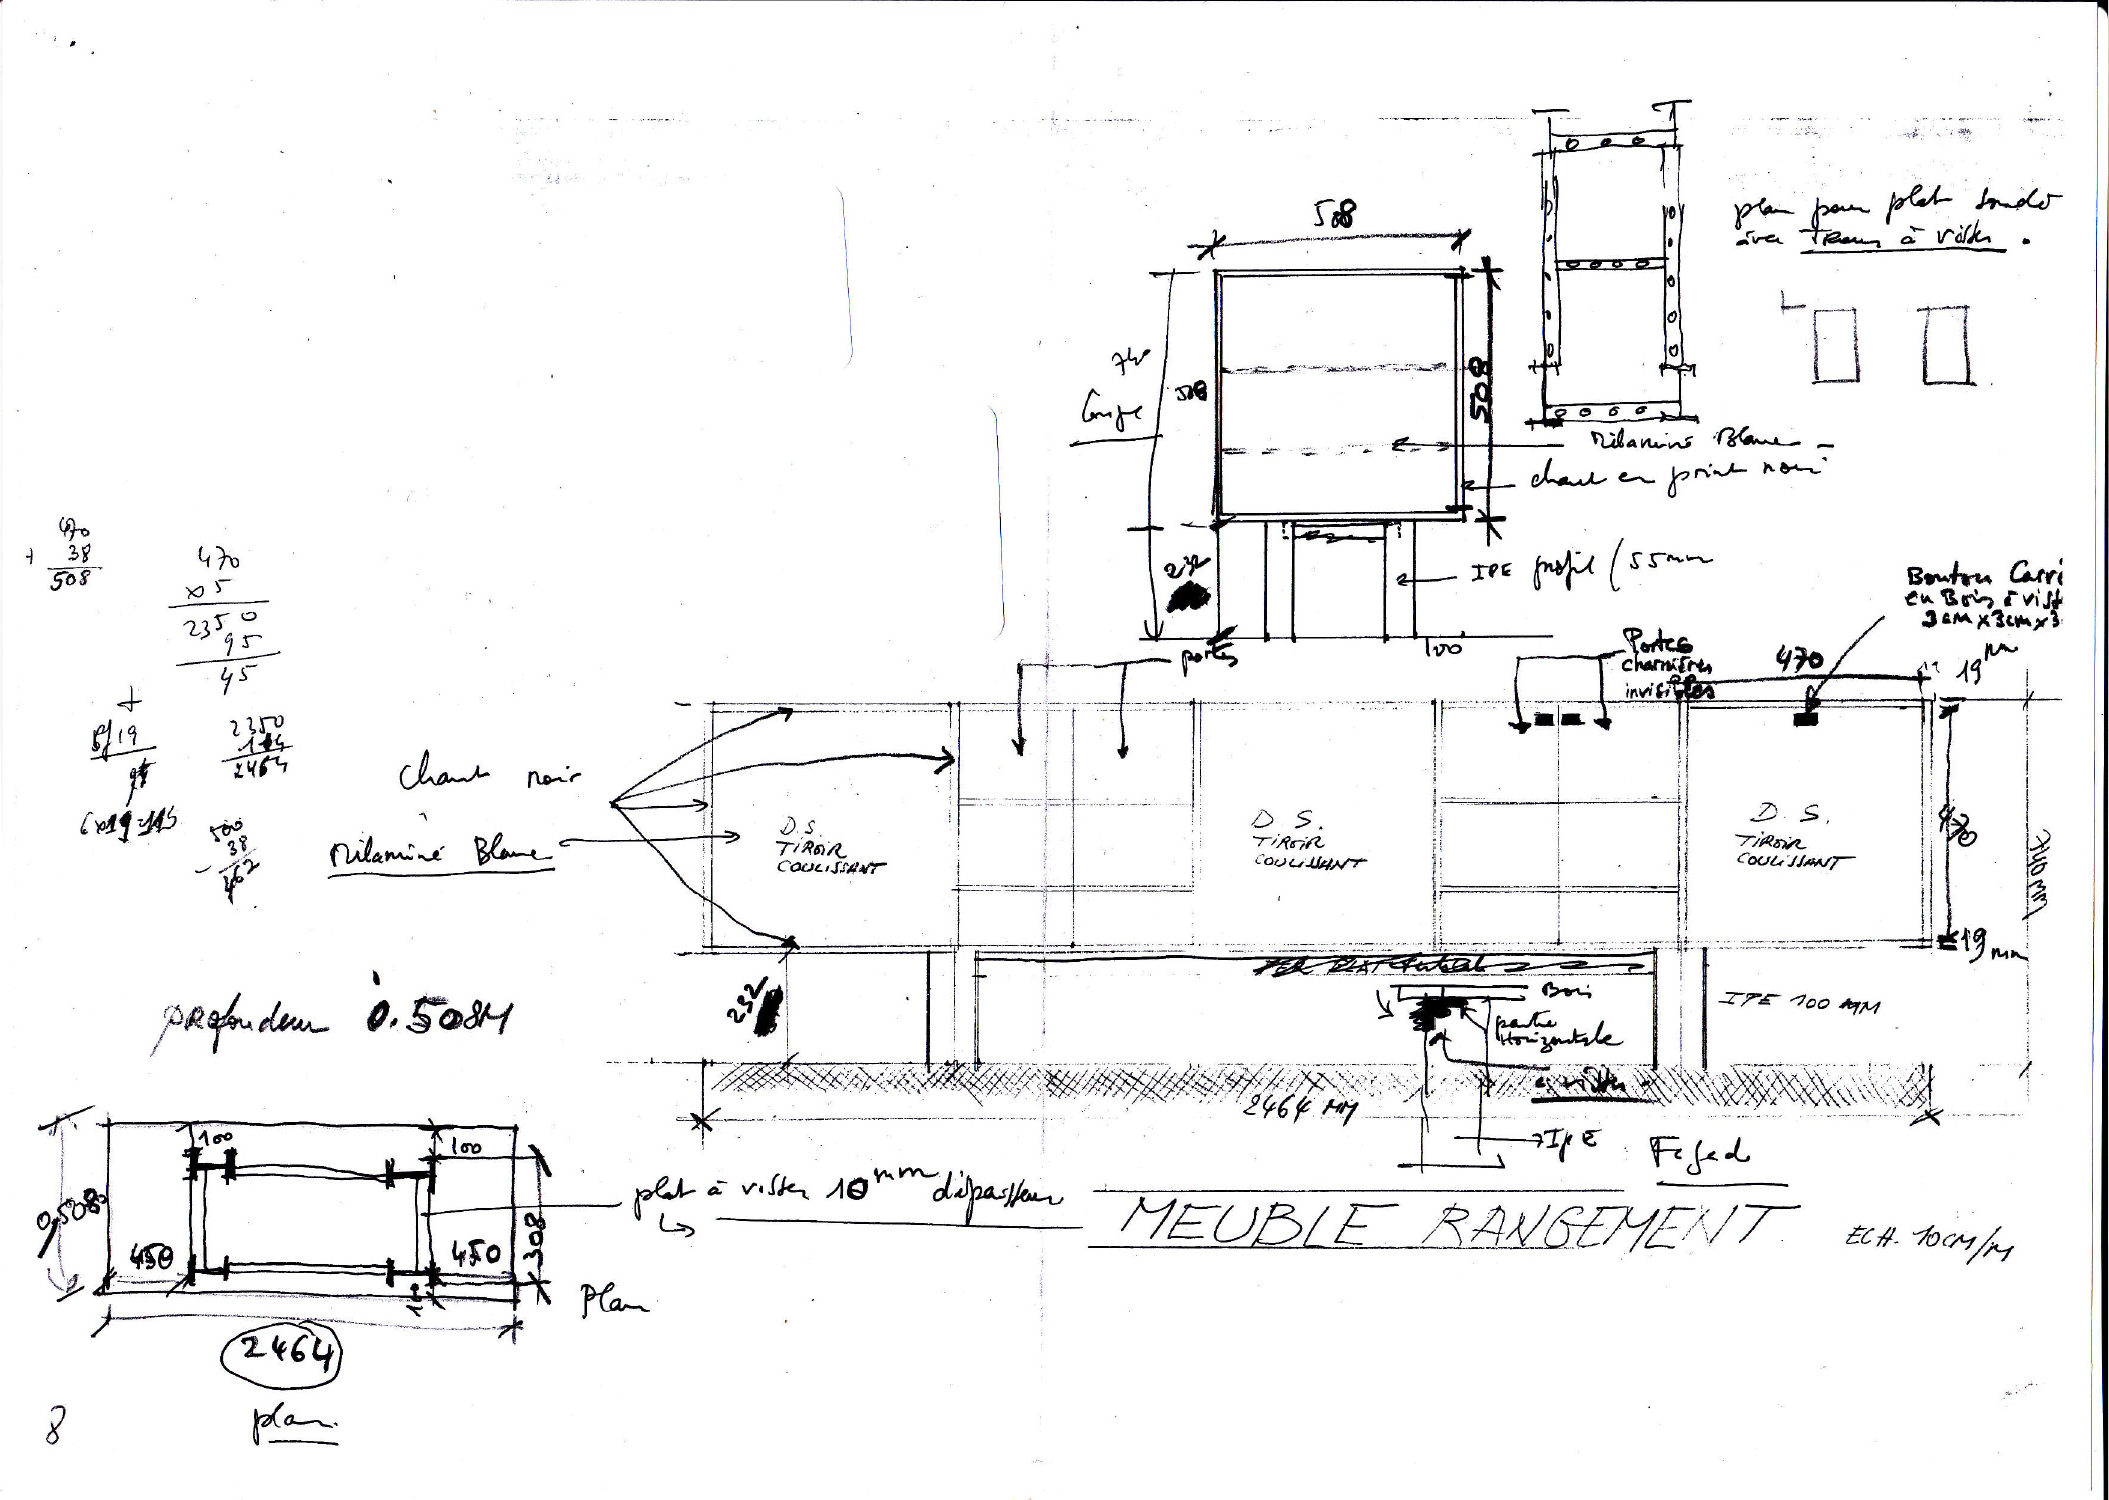 508
plan pour plat soudé
avec Trous à visser.
740
508
508
Coupe
Mélaminé Blanc
chant en peint noir
470
+ 38
508
470
x5
2350
95
45
232
IPE profil / 55mm
Bouton Carré
en Bois à viss
3cm x 3cm x 3
100
portes
Portes
charnières
invisibles
470
19 mm
+
5/19
95
6x19=115
2350
114
2464
500
- 38
462
chant noir
Mélaminé Blanc
D.S.
TIROIR
COULISSANT
D.S.
TIROIR
COULISSANT
D.S.
TIROIR
COULISSANT
470
740 MM
19 mm
232
Bois
partie
Horizontale
à visser
IPE 100 MM
PROfondeur 0.508M
2464 MM
IPE
Façade
plat à visser 10mm d'épaisseur
MEUBLE RANGEMENT
ECH. 10CM/M
100
100
0,508
450
450
308
100
Plan
2464
plan.
8